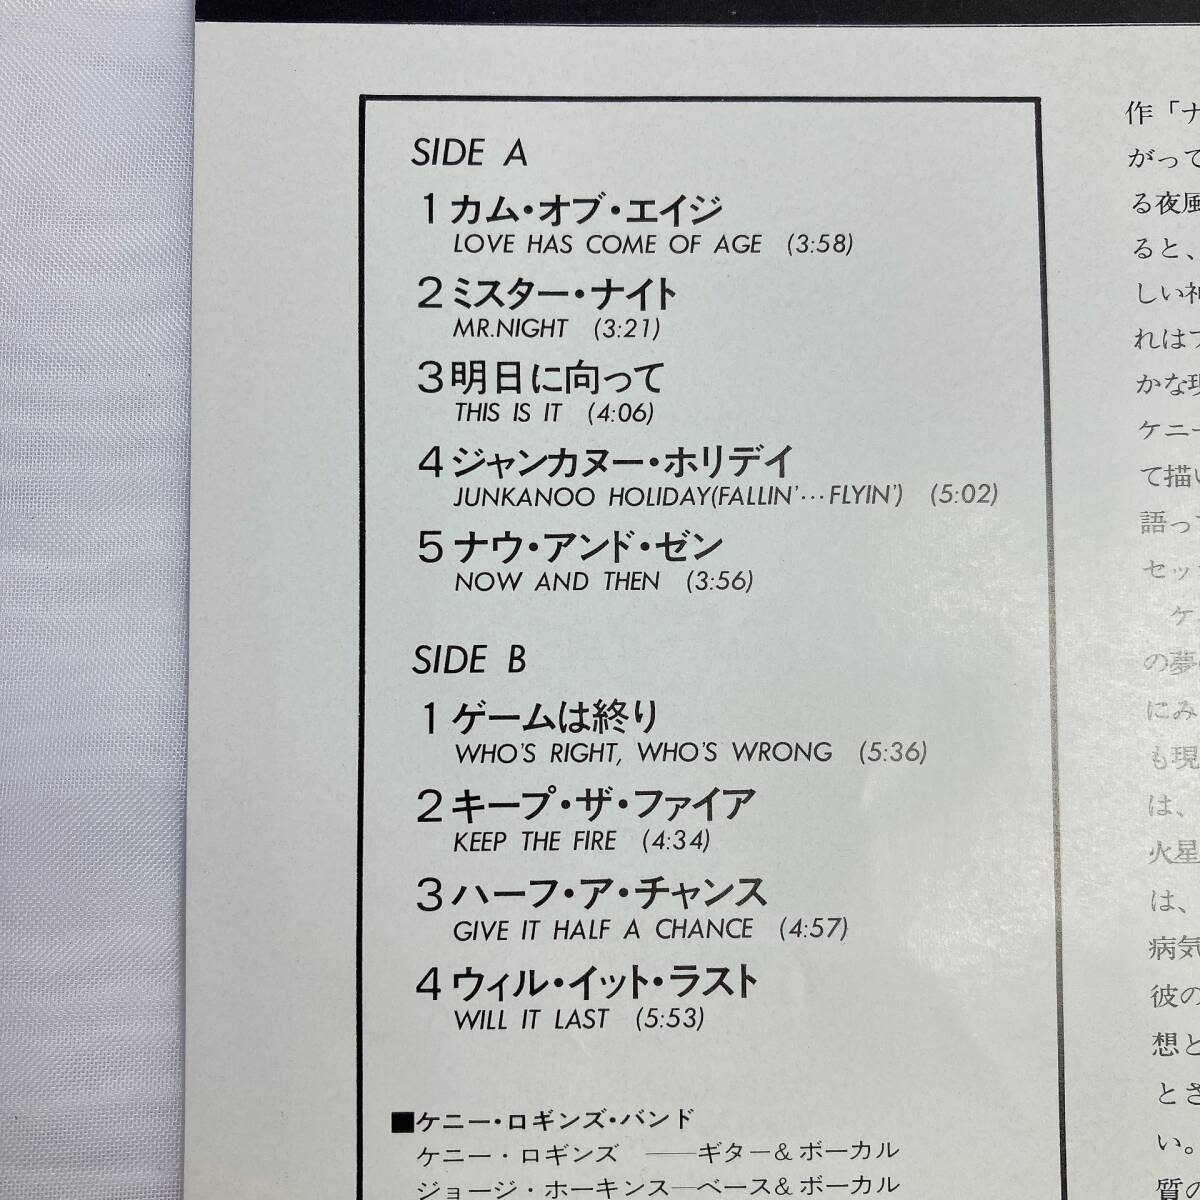 SIDE A
1 カム・オブ・エイジ
LOVE HAS COME OF AGE (3:58)
2 ミスター・ナイト
MR.NIGHT (3:21)
3 明日に向って
THIS IS IT (4:06)
4 ジャンカヌー・ホリデイ
JUNKANOO HOLIDAY(FALLIN'…FLYIN') (5:02)
5 ナウ・アンド・ゼン
NOW AND THEN (3:56)
SIDE B
1 ゲームは終り
WHO'S RIGHT, WHO'S WRONG (5:36)
2 キープ・ザ・ファイア
KEEP THE FIRE (4:34)
3 ハーフ・ア・チャンス
GIVE IT HALF A CHANCE (4:57)
4 ウィル・イット・ラスト
WILL IT LAST (5:53)
■ケニー・ロギンズ・バンド
ケニー・ロギンズ ──ギター&ボーカル
ジョージ・ホーキンス─ベース&ボーカル
作「ナ
がって
る夜風
ると、
しい神
れは
かな現
ケニー
て描い
語っ
セッ
ケ
の夢
にみ
も現
は、
火星
は、
病気
彼の
想と
とさ
い。
質の